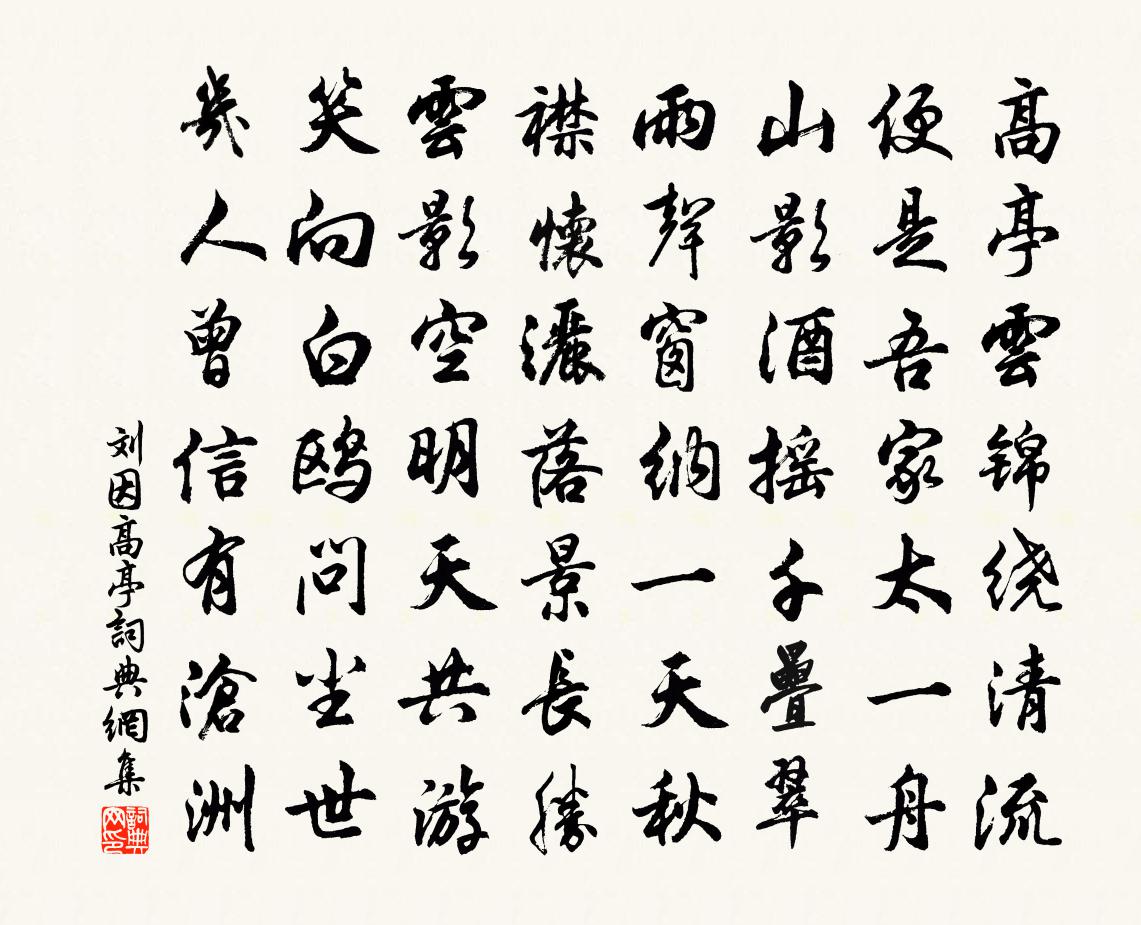 高亭雲锦绕清流
便是吾家太一舟
山影酒摇千疊翠
雨聲窗纳一天秋
襟懷灑落景長勝
雲影空明天共游
笑向白鸥問尘世
幾人曾信有滄洲
刘因高亭詞典網集
詞典网印